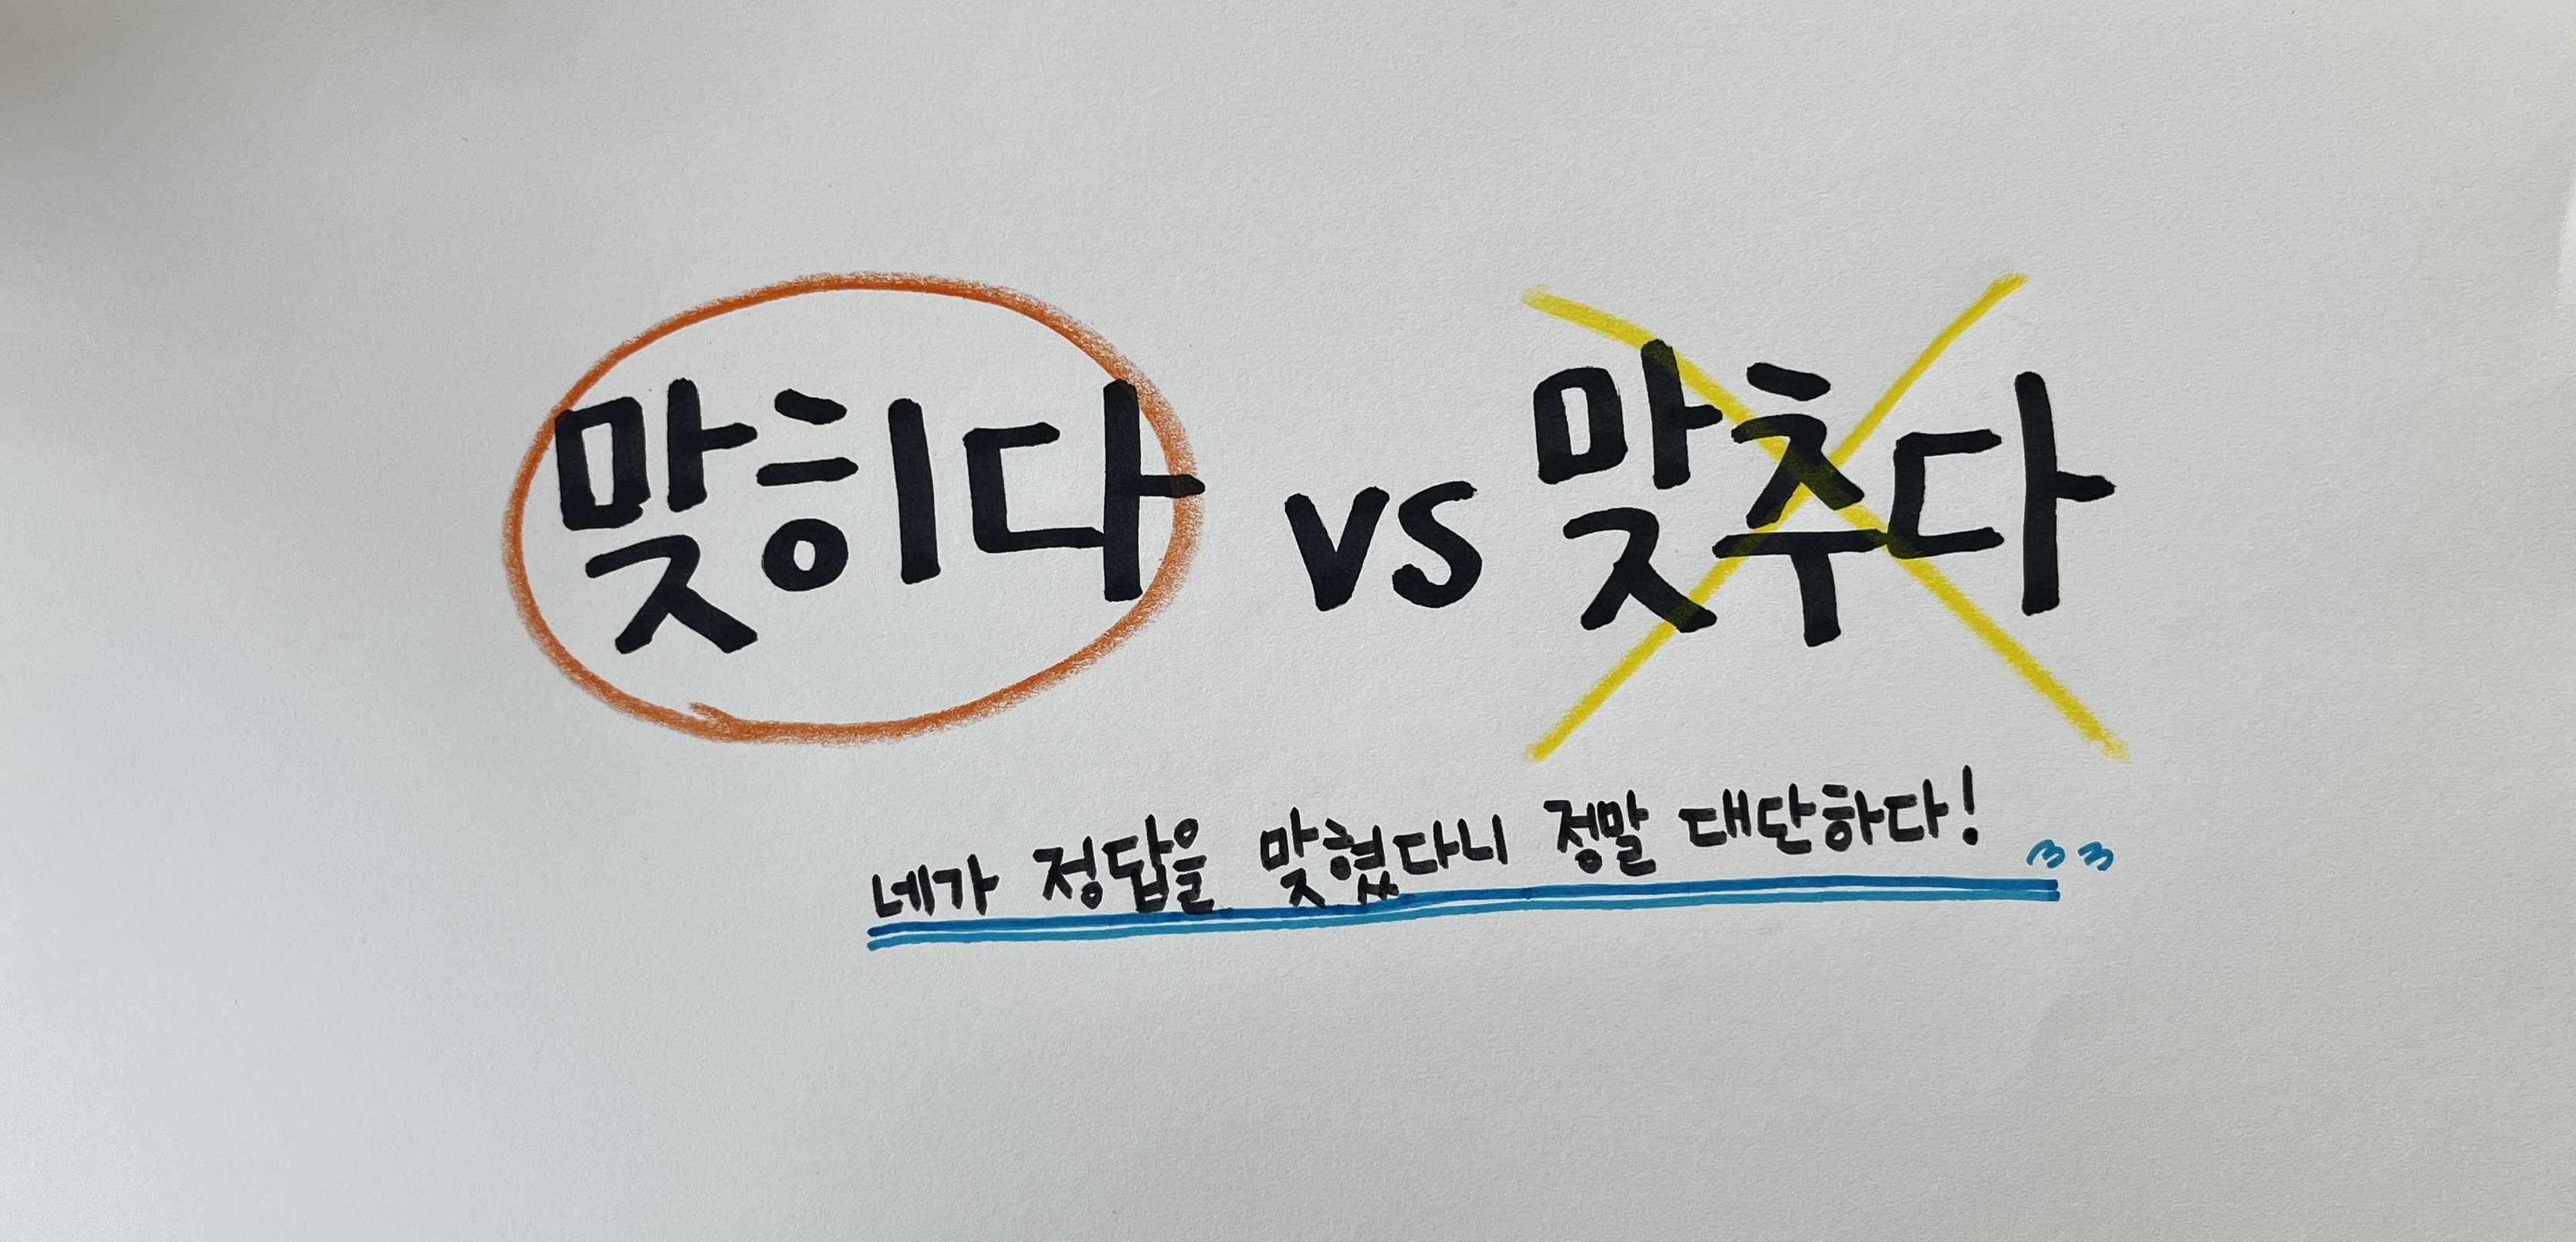 맞히다 vs 맞추다
네가 정답을 맞혔다니 정말 대단하다!